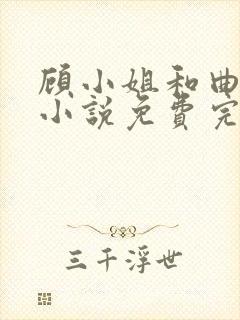 顾小姐和曲
小说免费完
三千浮世